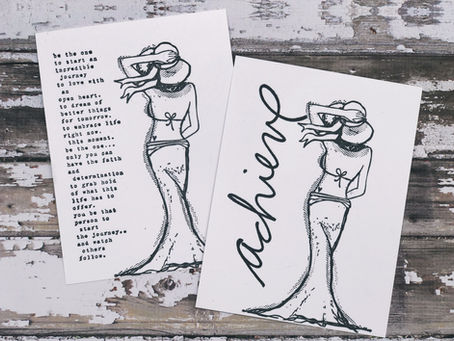 be the one
to start an
incredible
journey
to love with
an
open heart.
to dream of
better things
for tomorrow.
to embrace life
right now.
this moment.
be the one...
only you can
have the faith
and
determination
to grab hold
of what this
life has to
offer.
you be that
person to
start
the journey.
and watch
others
follow.
achieve